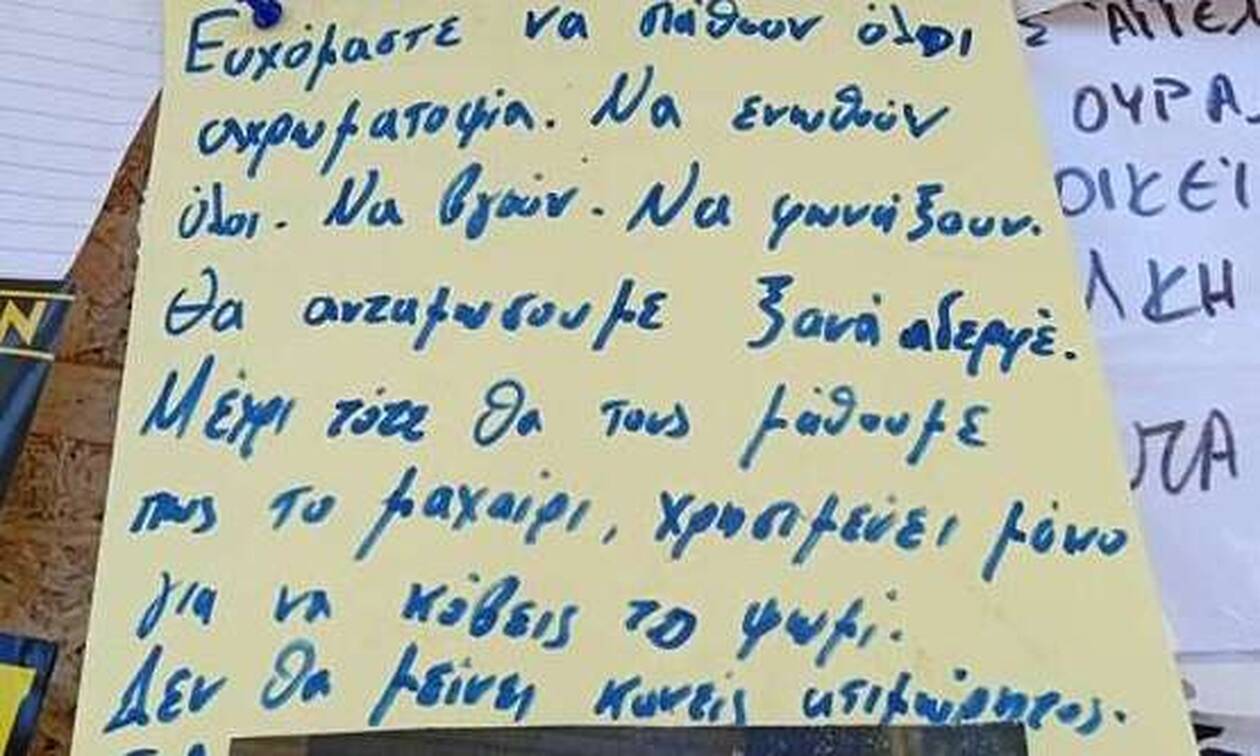 Ευχόμαστε να πάθουν όλοι
αχρωματοψία. Να ενωθούν
όλοι. Να βγούν. Να φωνάξουν.
Θα ανταμώσουμε ξανά αδερφέ.
Μέχρι τότε θα τους μάθουμε
πως το μαχαίρι, χρησιμεύει μόνο
για να κόβεις το ψωμί.
Δεν θα μείνει κανείς ατιμώρητος.
ΟΥΡΑ
ΟΙΚΕΙ
ΛΚΗ
ΠΑ
Ν